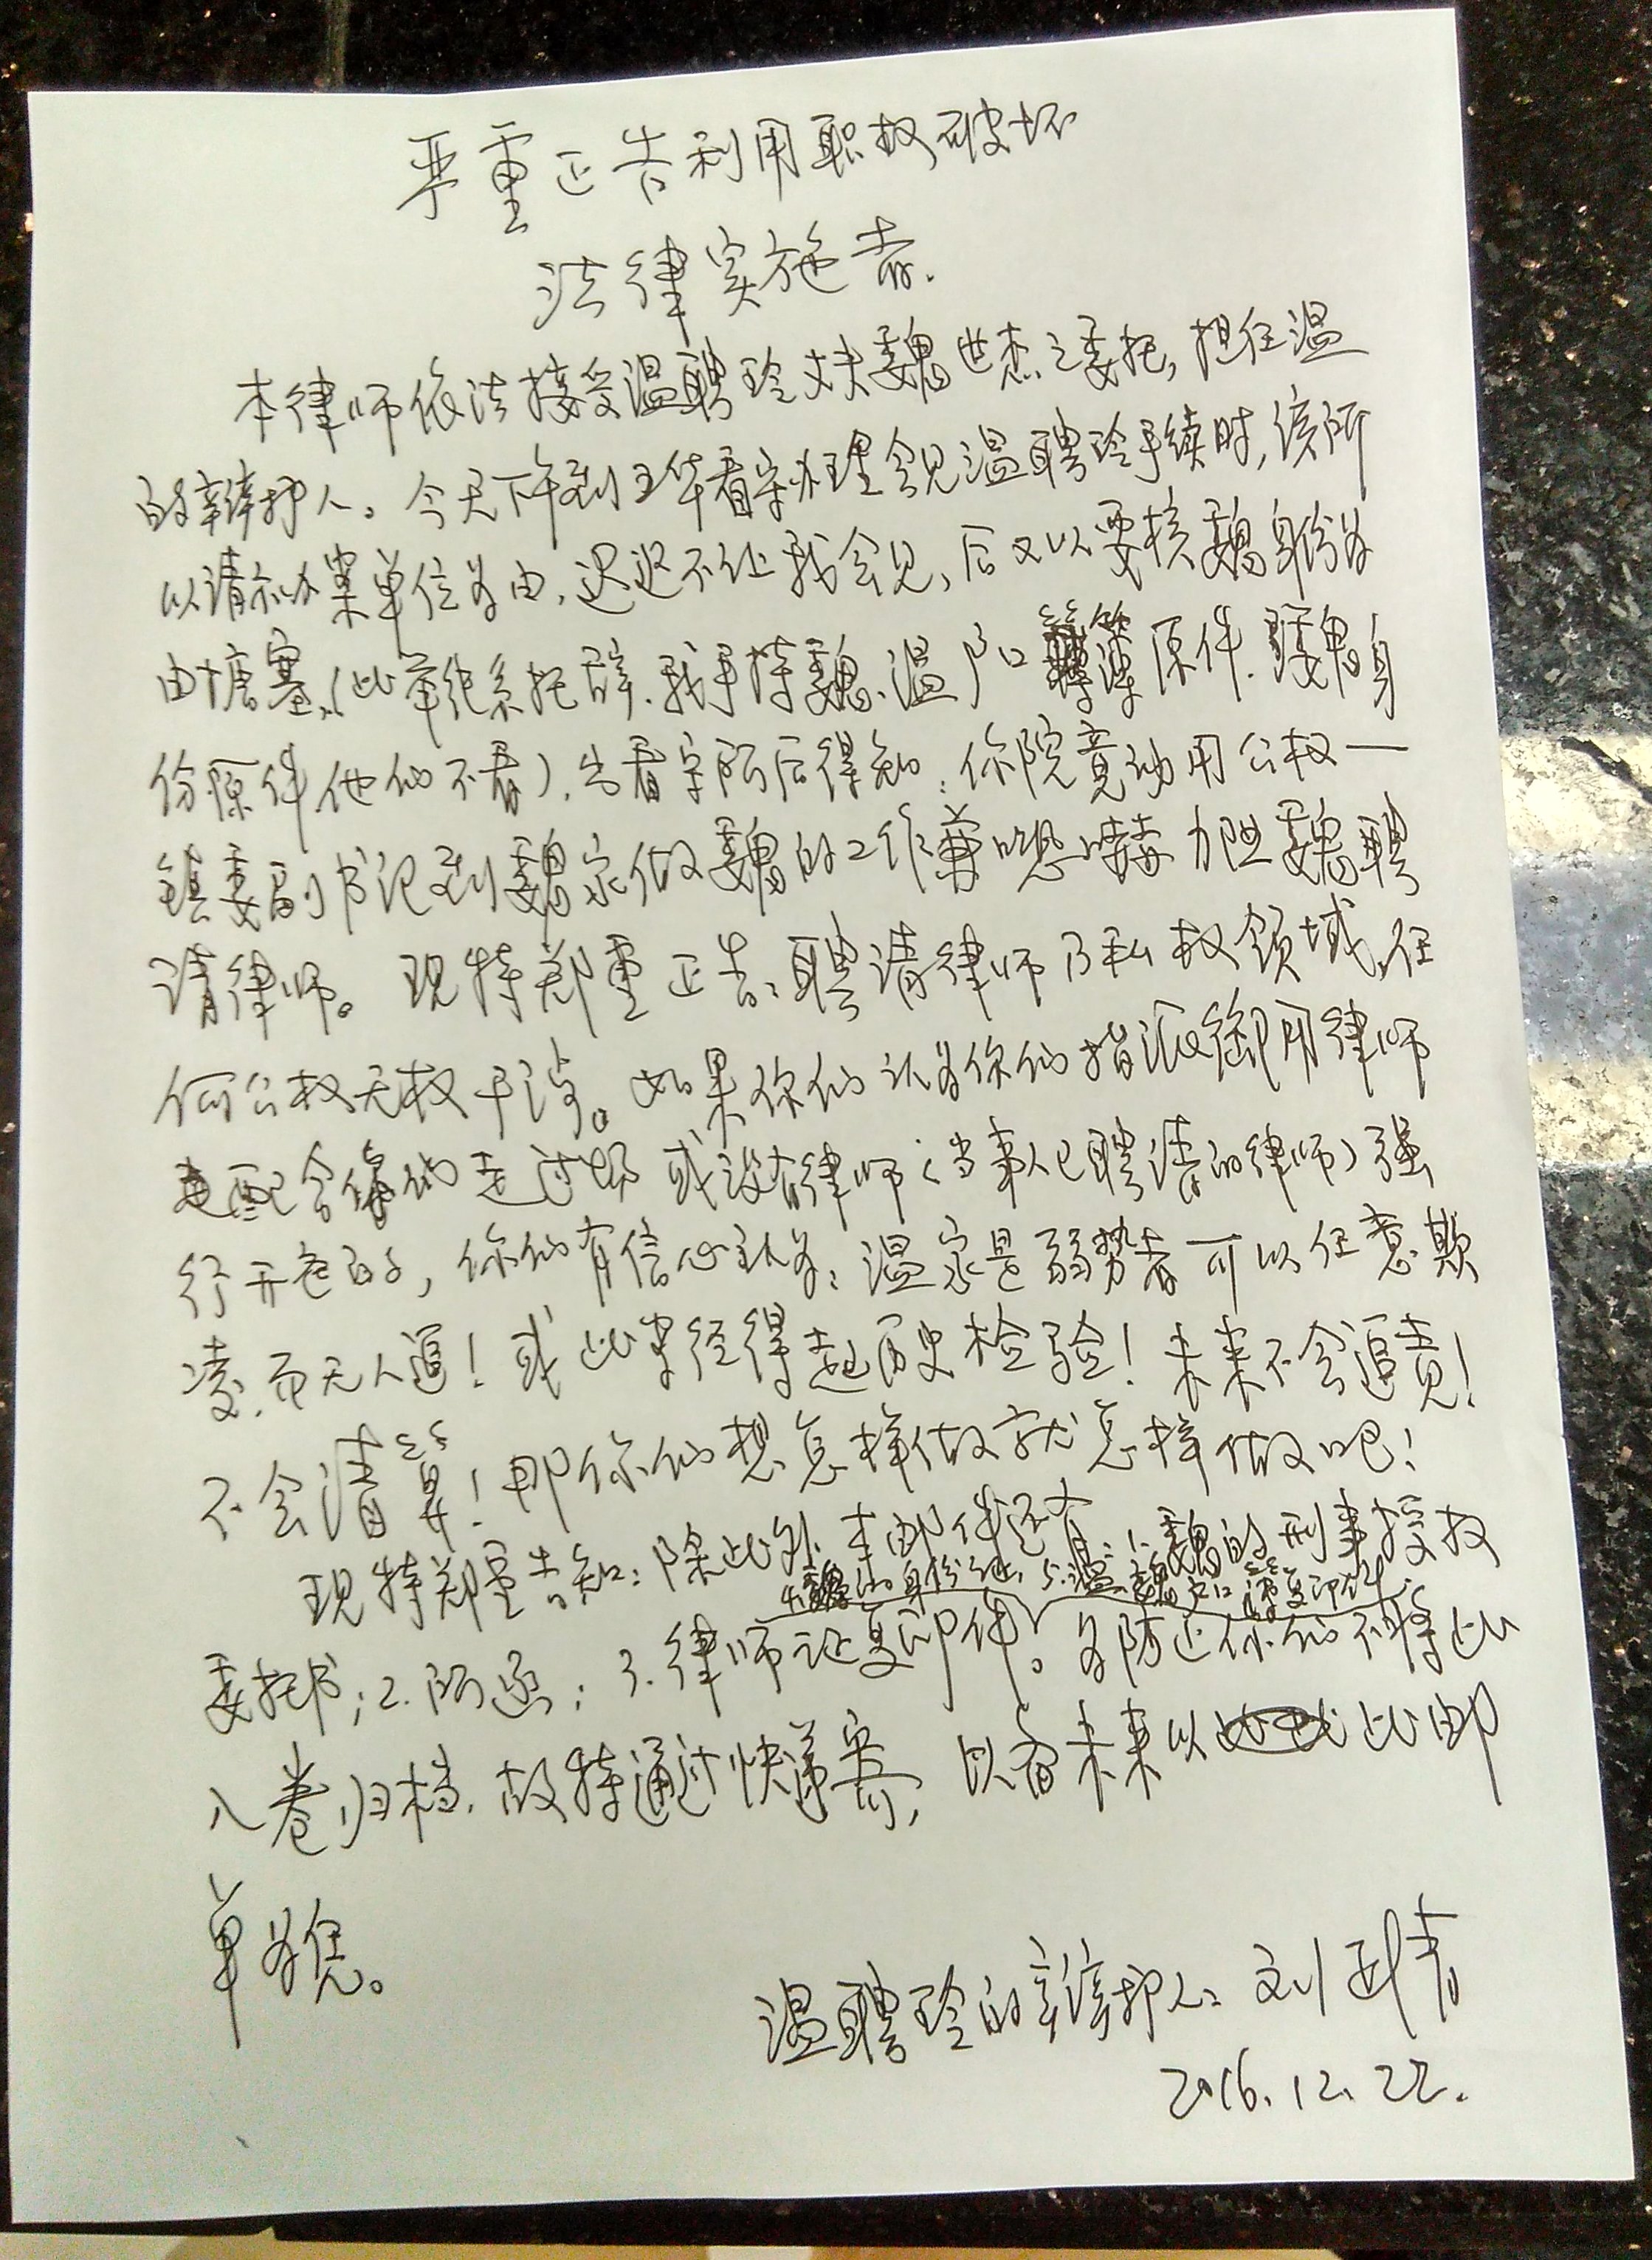 严重正告利用职权破坏
法律实施者.
本律师依法接受温聘玲丈夫魏世杰之委托,担任温
的辩护人。今天下午到玉华看守办理会见温聘玲手续时,该所
以请示办案单位为由,迟迟不让我会见,后又以要核魏身份为
由搪塞,(此举纯系托辞.我手持魏、温户口簿原件.魏身
份原件他们不看).出看守所后得知:你院竟动用公权一
镇委副书记到魏家做魏的工作兼恐吓阻魏聘
请律师。现特郑重正告:聘请律师乃私权领域,任
何公权无权干涉。如果你们认为你们指派御用律师
配合你们走过场或没有律师(当事人已聘请的律师)强
行开庭的,你们有信心认为:温家是弱势者可以任意欺
凌,而无人道!或此案经得起历史检验!未来不会追责!
不会清算!那你们想怎样做就怎样做吧!
现特郑重告知:除此外,本邮件还有:1.魏的刑事授权
4.魏的身份证;5.温、魏户口簿复印件.
委托书;2.所函;3.律师证复印件。为防止你们不将此
入卷归档,故特通过快递寄,以备未来以此邮
单为凭。
温聘玲的辩护人:刘正清
2016.12.22.